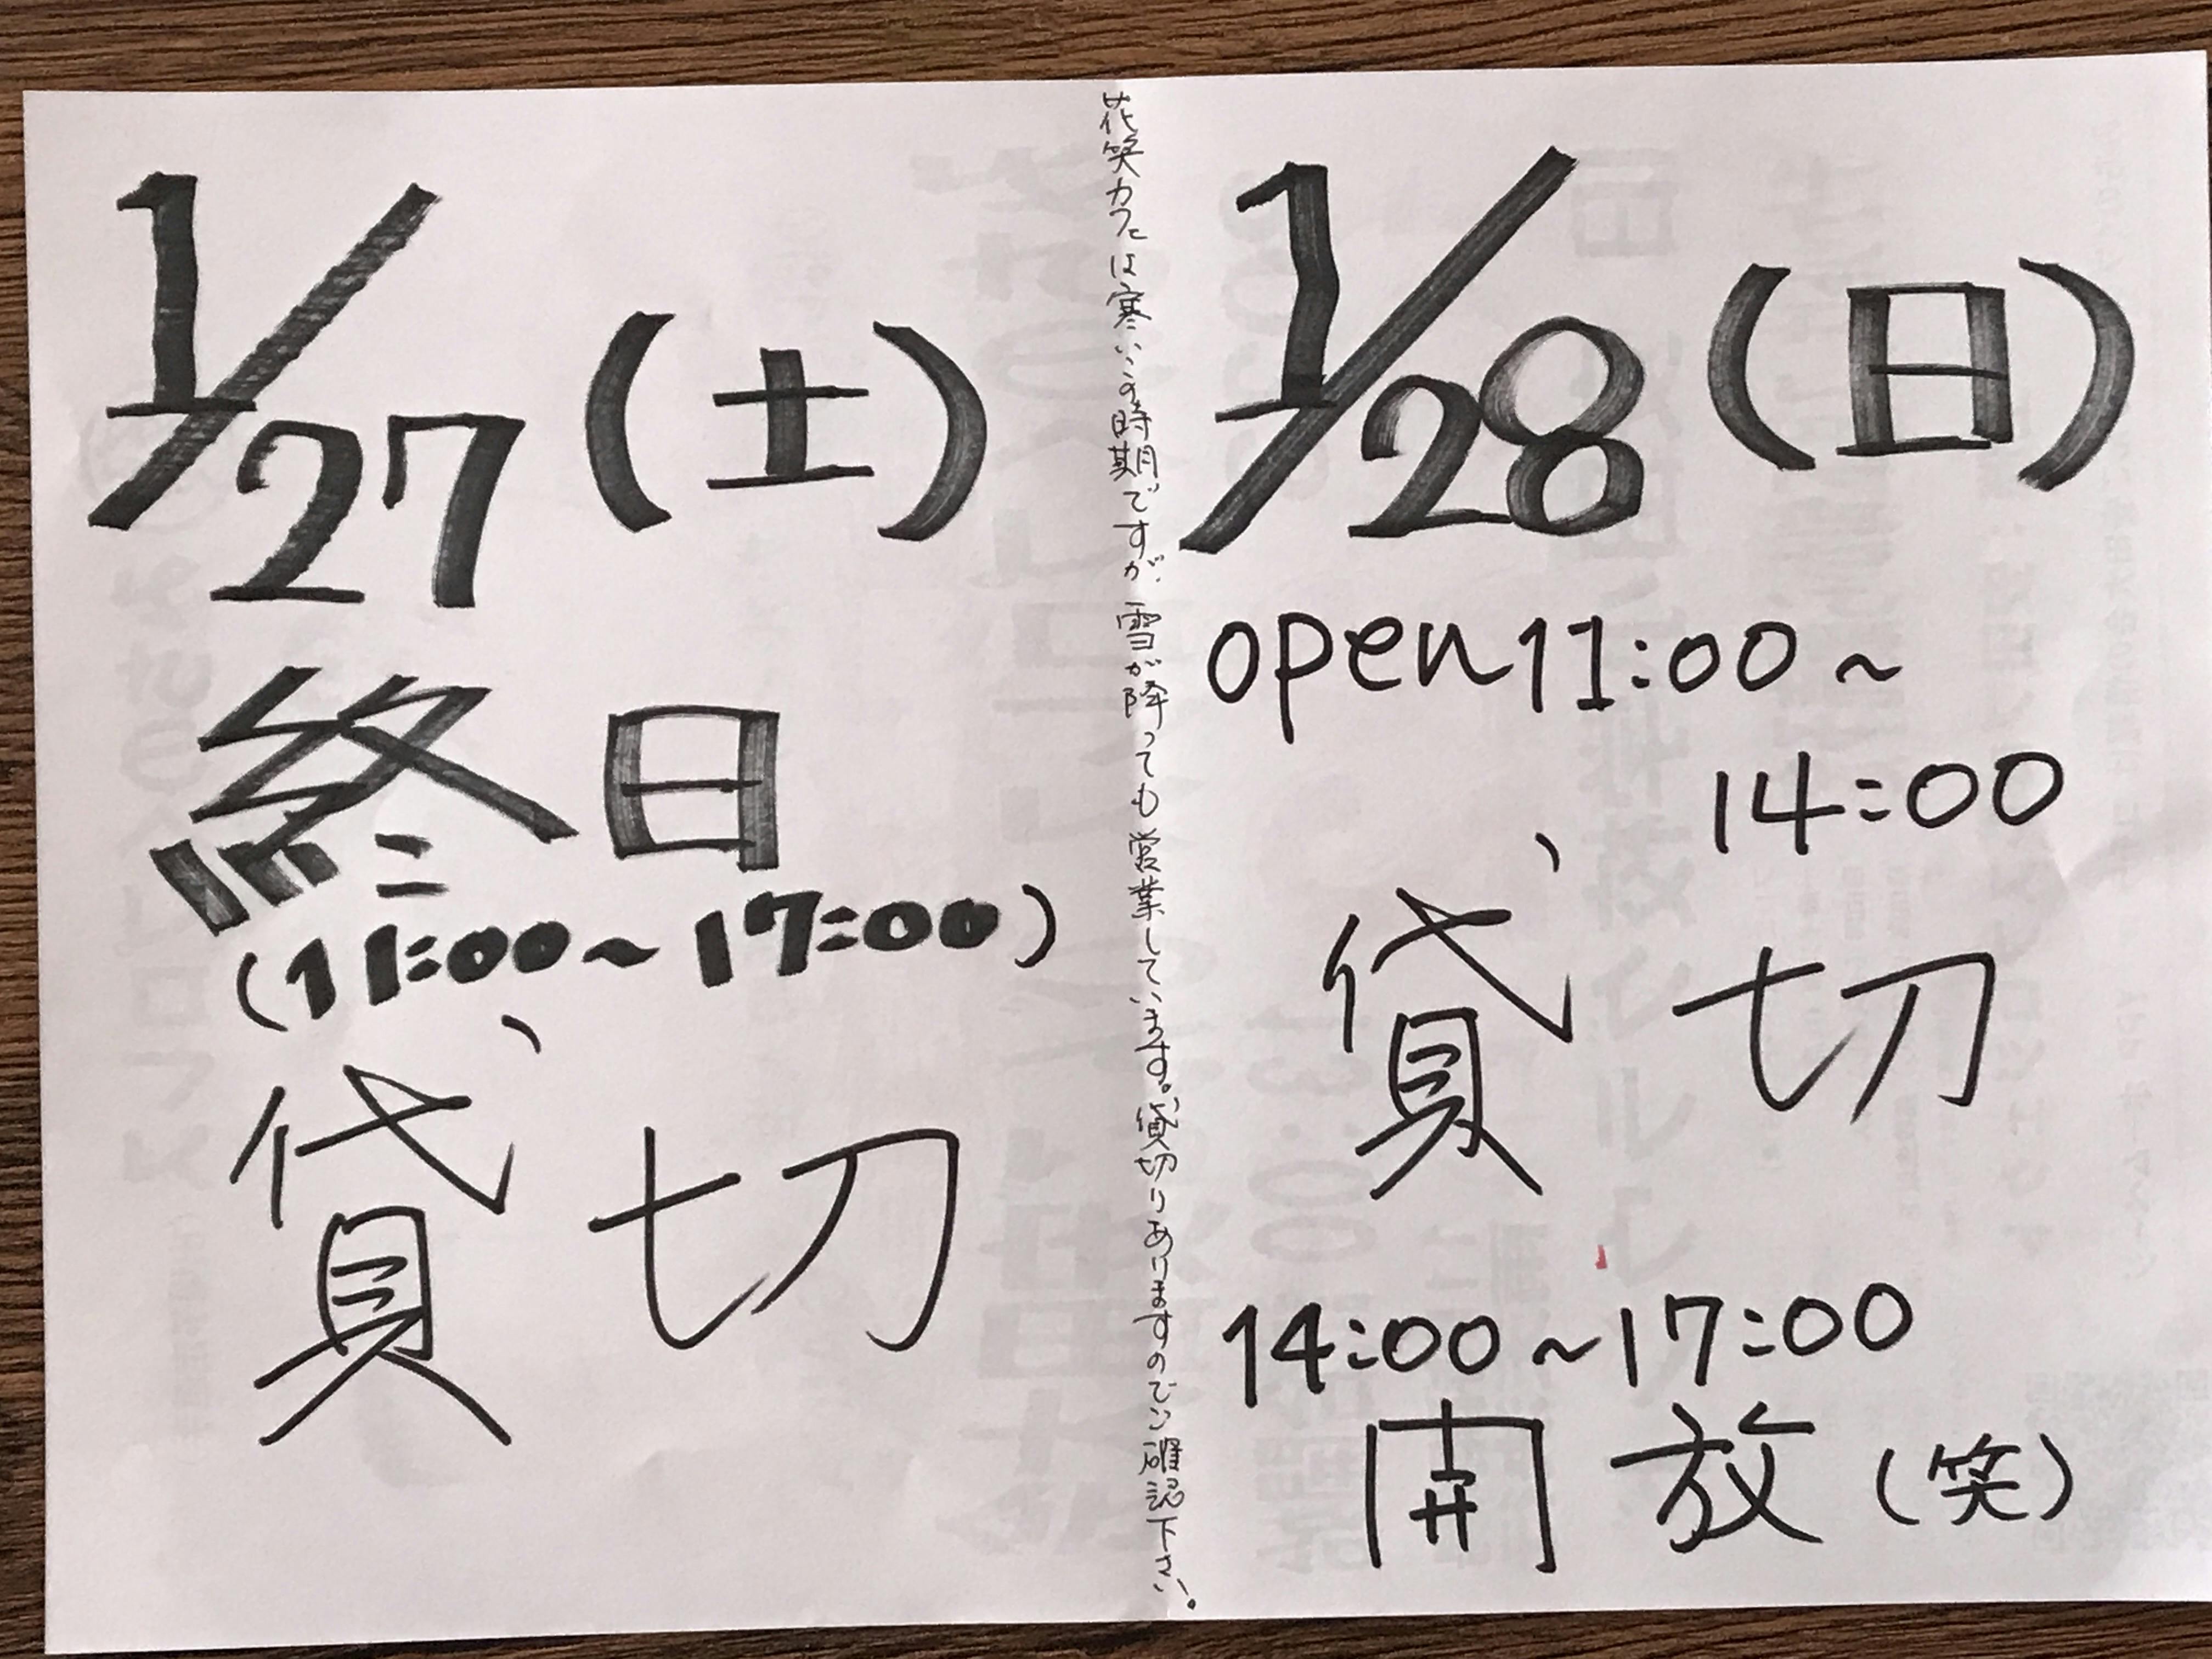 1/27(土)
終日
(11:00~17:00)
貸切
花笑カフェは寒いこの時期ですが、雪が降っても営業しています。貸切りありますのでご確認下さい。
1/28(日)
open11:00~
14:00
貸切
14:00~17:00
開放(笑)